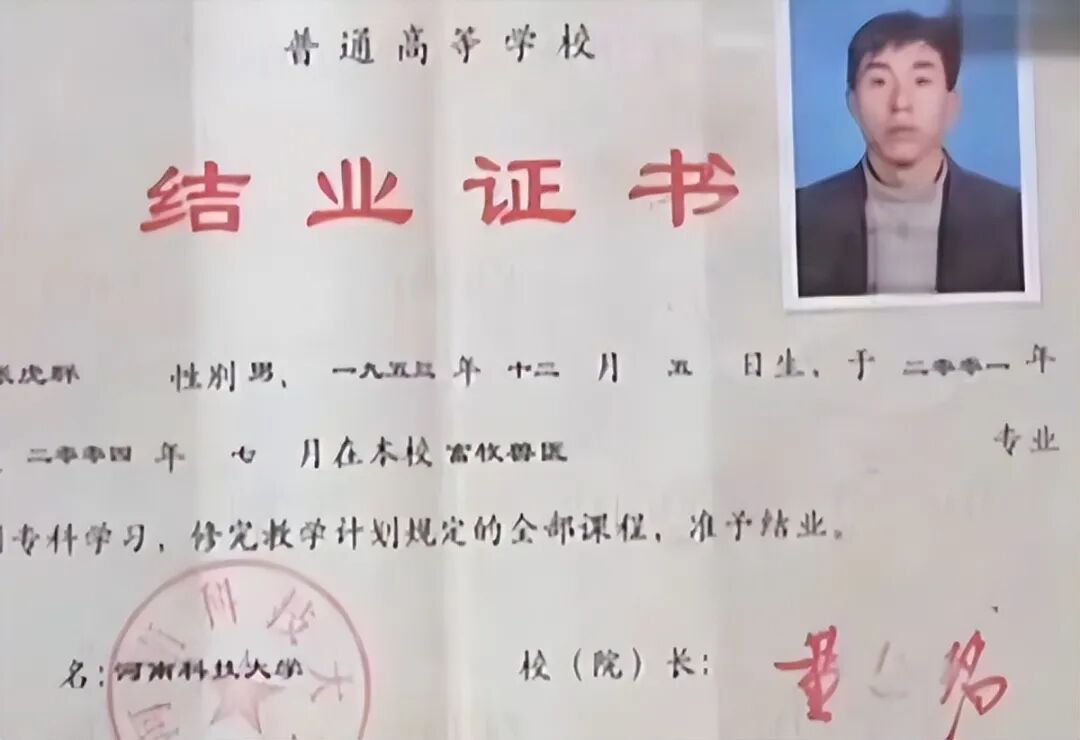 普通高等学校
结业证书
性别男、一九五三年十二月五日生、于二零零一年
二零零四年七月在本校畜牧兽医专业
专科学习，修完教学计划规定的全部课程，准予结业。
名：河南科技大学 校（院）长：